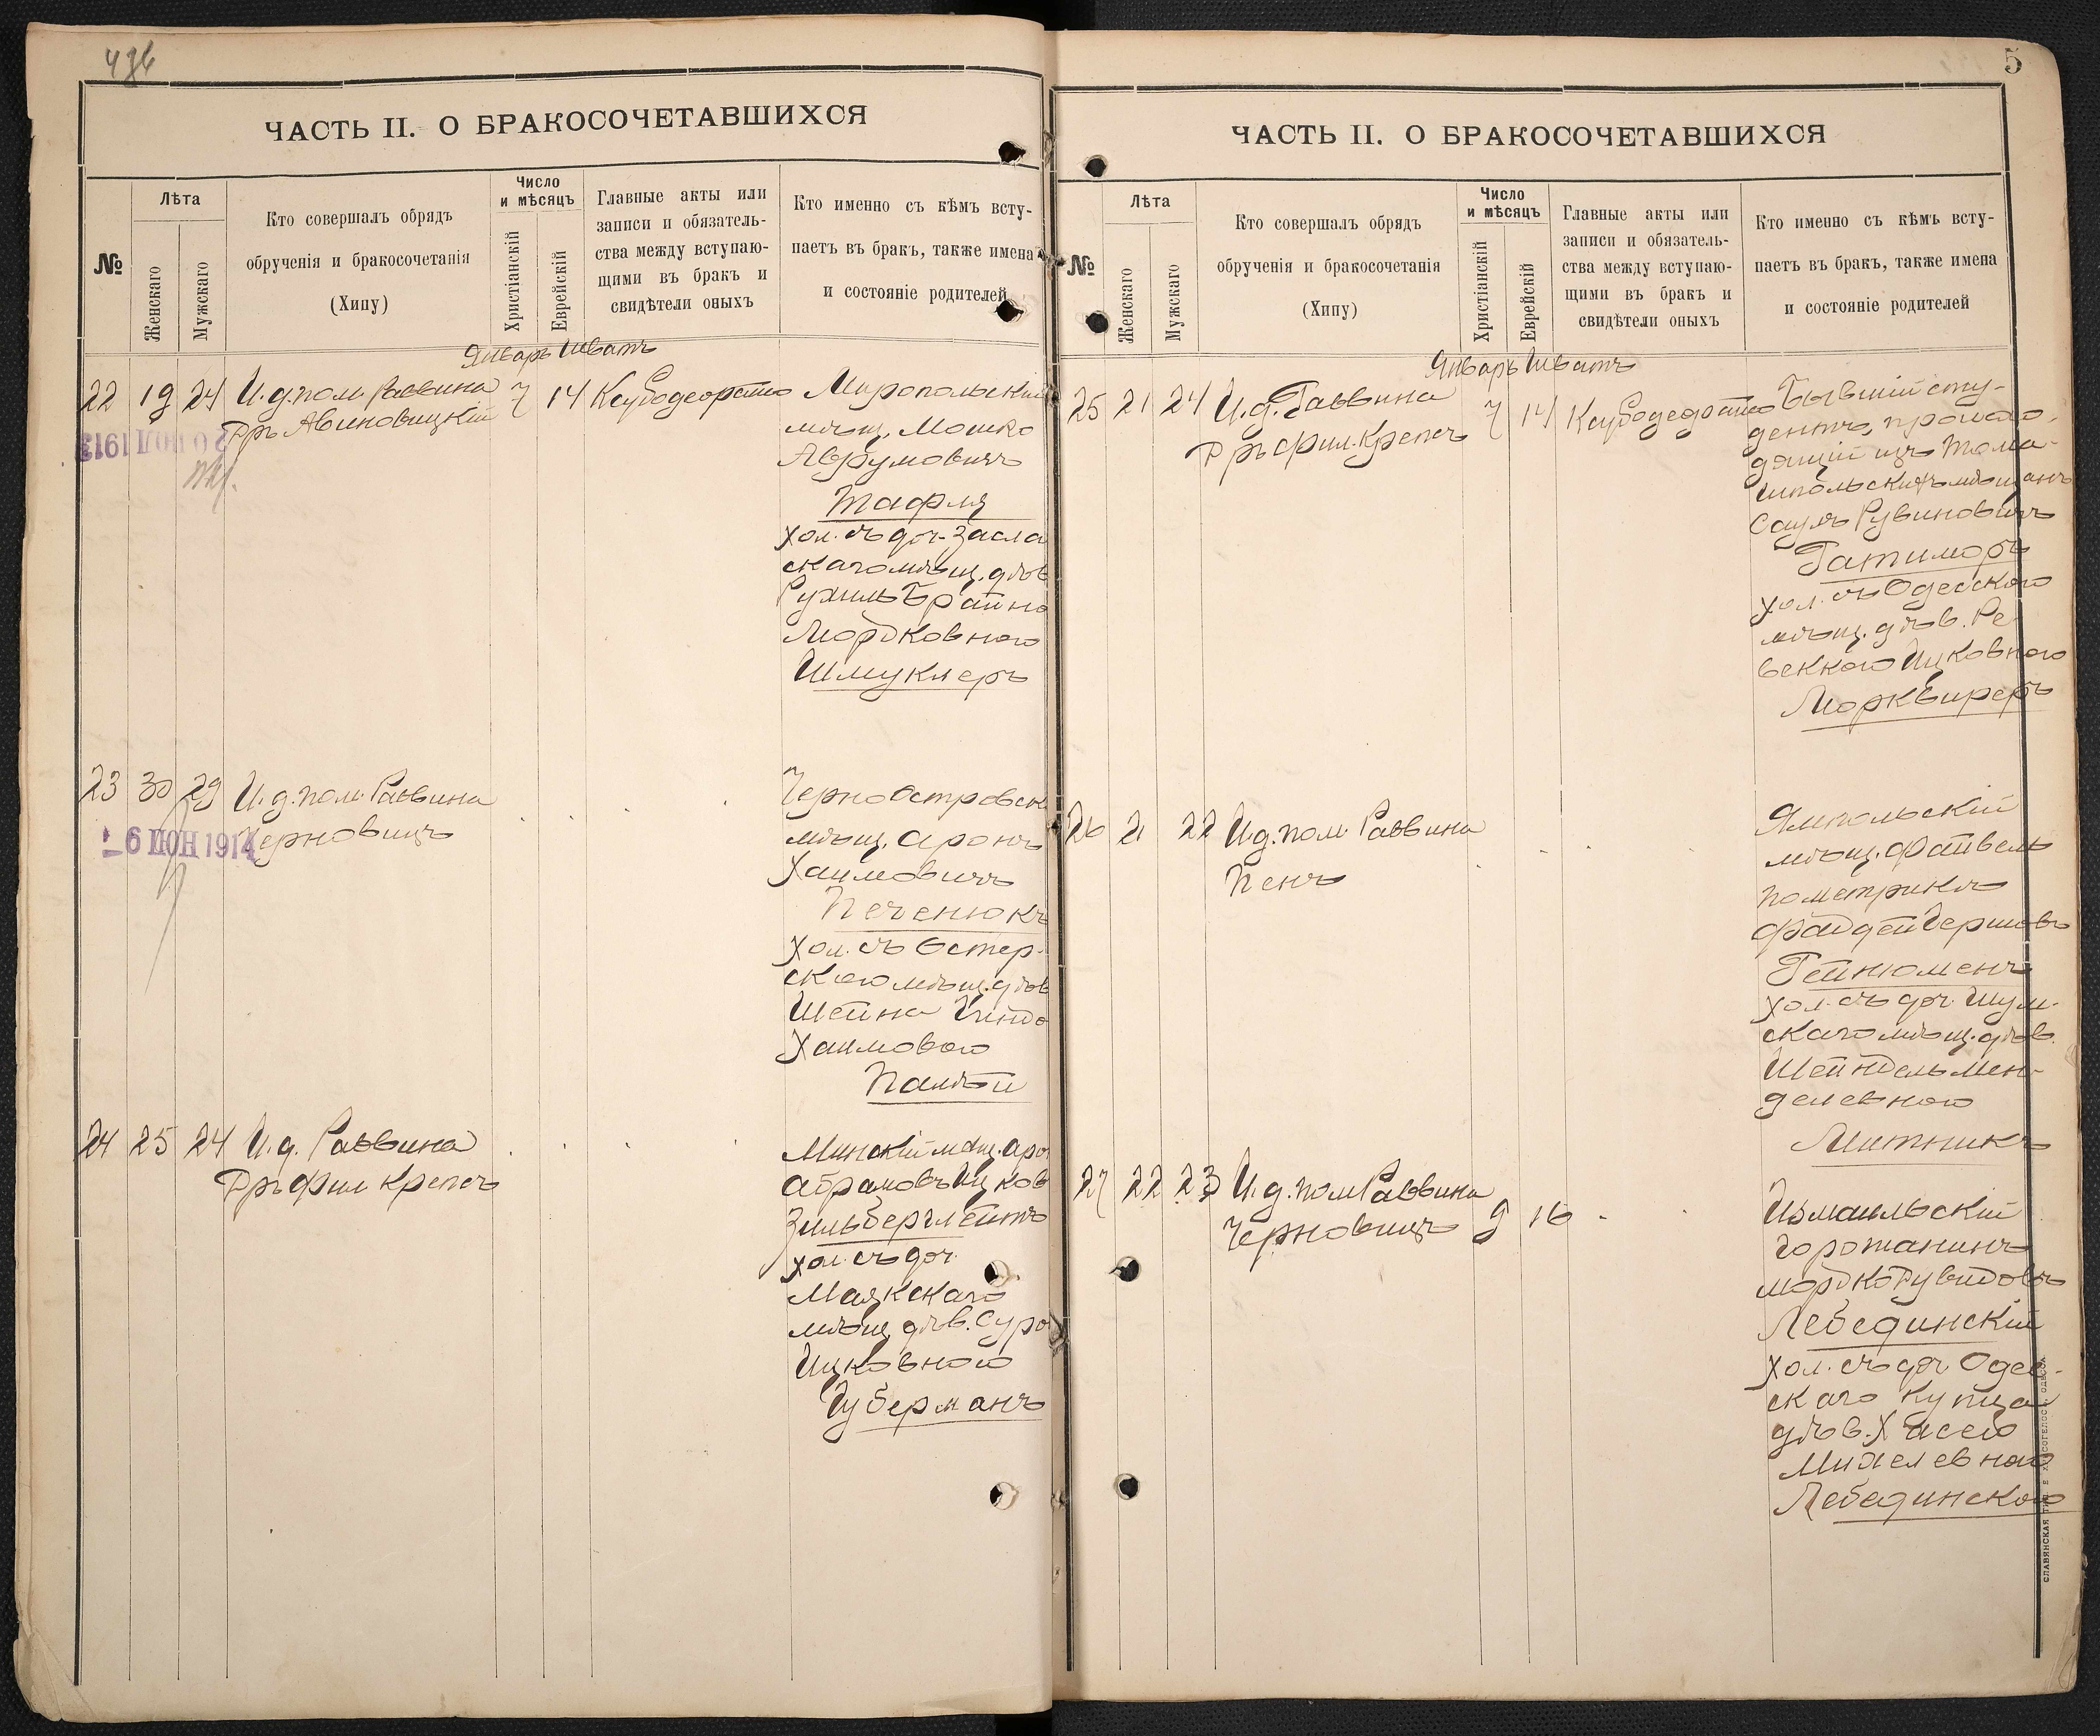 436
ЧАСТЬ II. О БРАКОСОЧЕТАВШИХСЯ
№
Лѣта
Женскаго
Мужскаго
Кто совершалъ обрядъ
обрученія и бракосочетанія
(Хипу)
Число
и мѣсяцъ
Христіанскій
Еврейскій
Главные акты или
записи и обязатель-
ства между вступаю-
щими въ бракъ и
свидѣтели оныхъ
Кто именно съ кѣмъ всту-
паетъ въ бракъ, также имена
и состояніе родителей
Январь Шватъ
22 19 24 И. д. пом. Раввина 7 14
Др͏ъ Авиновицкій
20 ІЮЛ 1913
Миропольскій
мѣщ. Мошко
Аврумовичъ
Тафля
хол. съ доч. Засла
скаго мѣщ. дѣв
Рухиль Брайно
Мордковною
Шмуклеръ
23 30 29 И. д. пом. Раввина
Черновицъ
- 6 ІЮН 1914
Черноостровск
мѣщ. Аронъ
Хаимовичъ
Печенюкъ
хол. съ Остер-
скою мѣщ. дѣв
Шейна Гинда
Хаимовою
Палѣй
24 25 24 И. д. Раввина
Дръ фил Крепсъ
Минскій мѣщ. Аро
Абрамовъ Ицков
Зильберглейтъ
хол. съ доч.
Маякскаго
мѣщ дѣв. Сура
Ицковною
Губерманъ
5
ЧАСТЬ II. О БРАКОСОЧЕТАВШИХСЯ
№
Лѣта
Женскаго
Мужскаго
Кто совершалъ обрядъ
обрученія и бракосочетанія
(Хипу)
Число
и мѣсяцъ
Христіанскій
Еврейскій
Главные акты или
записи и обязатель-
ства между вступаю-
щими въ бракъ и
свидѣтели оныхъ
Кто именно съ кѣмъ всту-
паетъ въ бракъ, также имена
и состояніе родителей
Январь Шватъ
25 21 24 И. д. Раввина 7 14
Дръ фил. Крепсъ
Бывшій сту-
дентъ, происхо-
дящій изъ Тома-
шпольскихъ мѣщанъ
Сауль Рувиновичъ
Гатиморъ
хол. съ Одесскою
мѣщ. дѣв. Ре-
веккою Ицковною
Морквиреръ
26 21 22 И. д. пом. Раввина
Пенъ
Ямпольскій
мѣщ. Файвель
по метрикѣ
Файдей Гершовъ
Гейнюменъ
хол. съ доч. Шум-
скаго мѣщ. дѣв.
Шейндель Мен-
делевною
Митникъ
27 22 23 И. д. пом Раввина 9 16
Черновицъ
Измаильскій
горожанинъ
Мордко Дувидовъ
Лебединскій
хол. съ доч Одес-
скаго купца
дѣв. Хасею
Михелевною
Лебединскою
СЛАВЯНСКАЯ ТИП. Е. ХРИСОГЕЛОСЪ, ОДЕССА